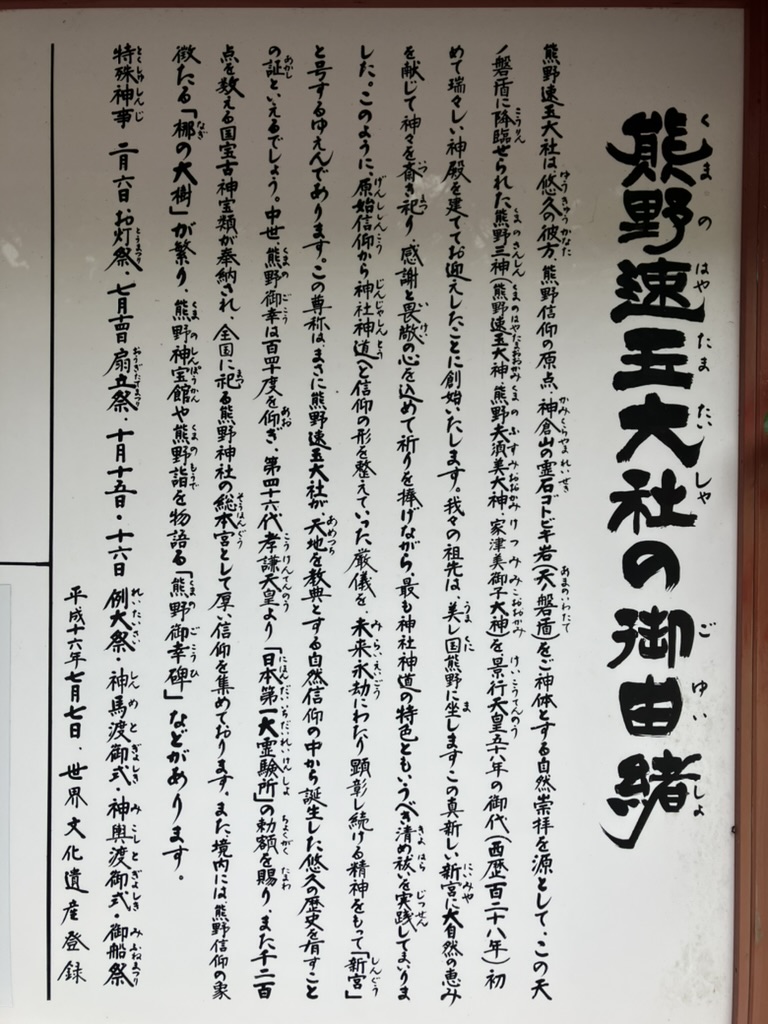 熊野速玉大社の御由緒
熊野速玉大社は、悠久の彼方、熊野信仰の原点、神倉山の霊石ゴトビキ岩(天磐盾)をご神体とする自然崇拝を源として、この天
ノ磐盾に降臨せられた熊野三神(熊野速玉大神・熊野夫須美大神・家津美御子大神)を、景行天皇五十八年の御代(西歴百二十八年)初
めて瑞々しい神殿を建ててお迎えしたことに創始いたします。我々の祖先は、美し国熊野に坐しますこの真新しい新宮に大自然の恵み
を献じて神々を斎き祀り、感謝と畏敬の心を込めて祈りを捧げながら、最も神社神道の特色ともいうべき清め祓いを実践してまいりま
した。このように、原始信仰から神社神道へと信仰の形を整えていった厳儀を、未来永劫にわたり顕彰し続ける精神をもって「新宮」
と号するゆえんであります。この尊称は、まさに熊野速玉大社が、天地を教典とする自然信仰の中から誕生した悠久の歴史を有すこと
の証といえるでしょう。中世、熊野御幸は百四十度を仰ぎ、第四十六代孝謙天皇より「日本第一大霊験所」の勅額を賜り、また千二百
点を数える国宝古神宝類が奉納され、全国に祀る熊野神社の総本宮として厚い信仰を集めております。また境内には、熊野信仰の象
徴たる「梛の大樹」が繁り、熊野神宝館や熊野詣を物語る「熊野御幸碑」などがあります。
特殊神事 二月六日 お灯祭・七月十四日 扇立祭・十月十五日・十六日 例大祭・神馬渡御式・神輿渡御式・御船祭
平成十六年七月七日、世界文化遺産登録